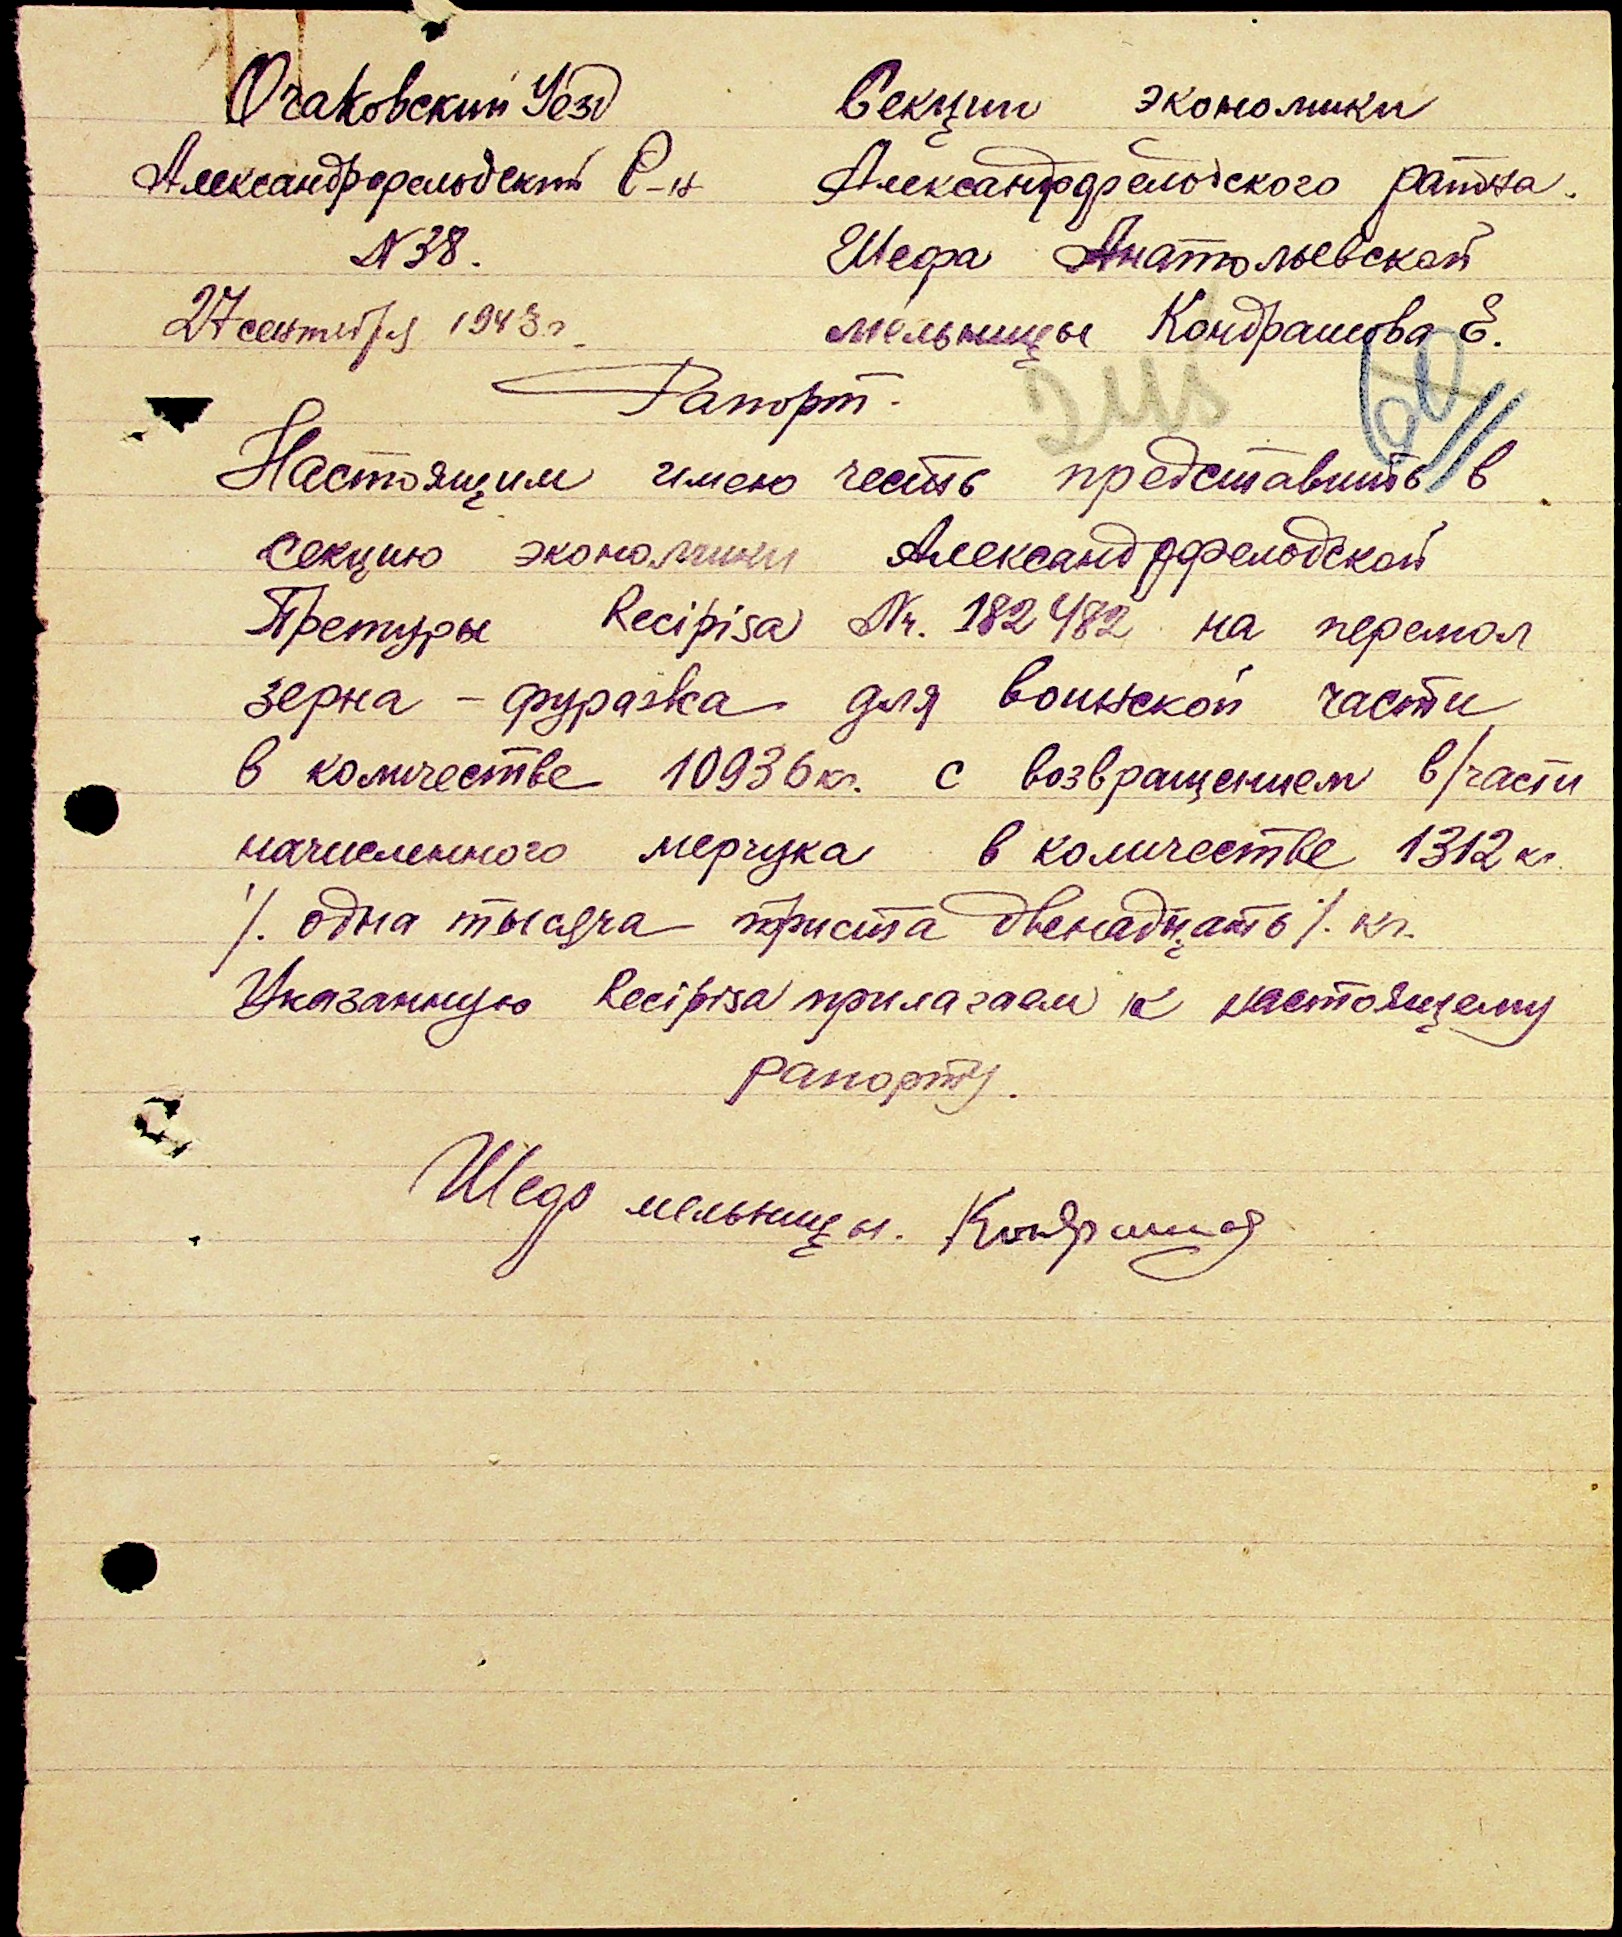 Очаковский Уезд
Александрфельдский Р-н
N 38.
27 сентября 1943 г.
Секции экономики
Александрфельдского района.
Шефа Анатольевской
мельницы Кондрашова Е.
Рапорт.
Настоящим имею честь представить в
секцию экономики Александрфельдской
Претуры Recipisa Nr. 182482 на перемол
зерна - фуража для воинской части
в количестве 10936 кг. с возвращением в/части
начисленного мерчука в количестве 1312 кг.
/. одна тысяча триста двенадцать /. кг.
Указанную Recipisa прилагаем к настоящему
рапорту.
Шеф мельницы. Кондрашов